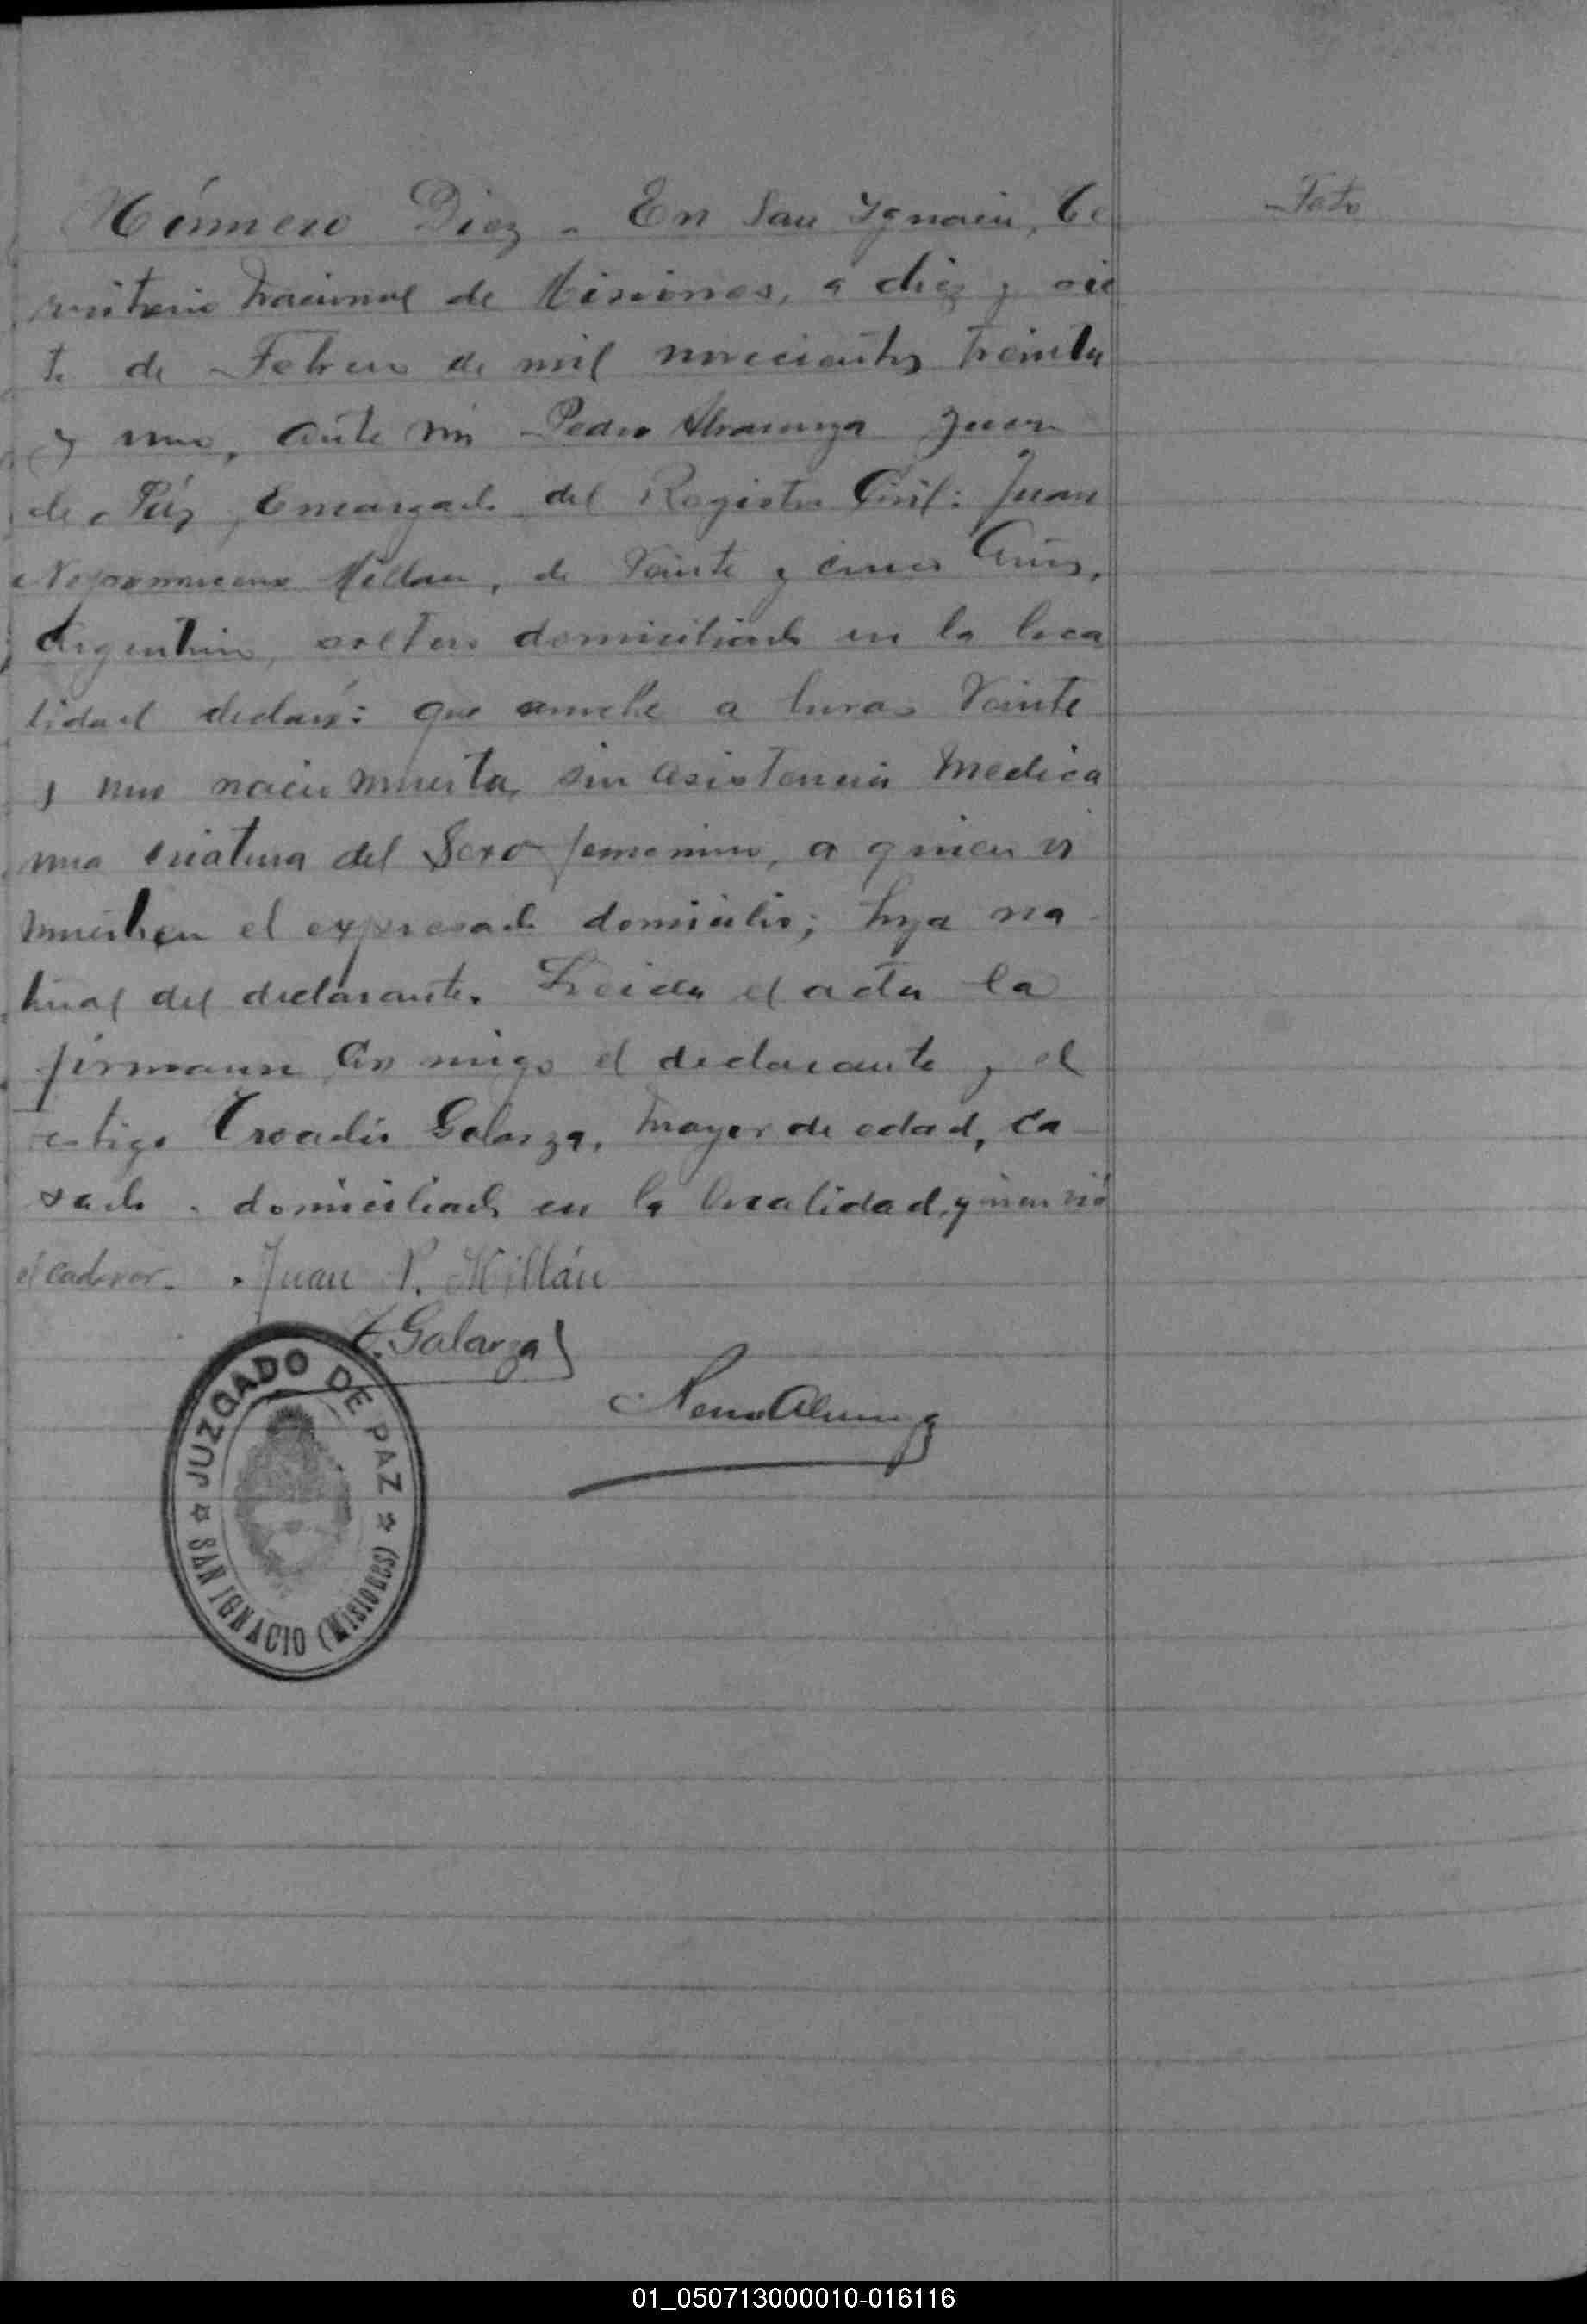 Número Diez - En San Ygnacio, Te
rritorio Nacional de Misiones, a diez y sie
te de Febrero de mil novecientos treinta
y uno, ante mi Pedro Juez
de Páz, Encargado del Registro Civil: Juan
Nepomuceno Millan, de Veinte y cinco Años,
Argentino, soltero domiciliado en la loca
lidad declaró: que anoche a horas Veinte
y una nacio muerta, sin asistencia Medica
una criatura del Sexo femenino, a quien vi
muerta en el expresado domicilio; hija na-
tural del declarante. Leida el acta la
firmaron con migo el declarante y el
testigo Troadio Galarza, mayor de edad, ca-
sado. domiciliado en la localidad, quien vió
el cadaver. Juan P. Millán
T. Galarza
Feto
JUZGADO DE PAZ
SAN IGNACIO (Misiones)
01_050713000010-016116